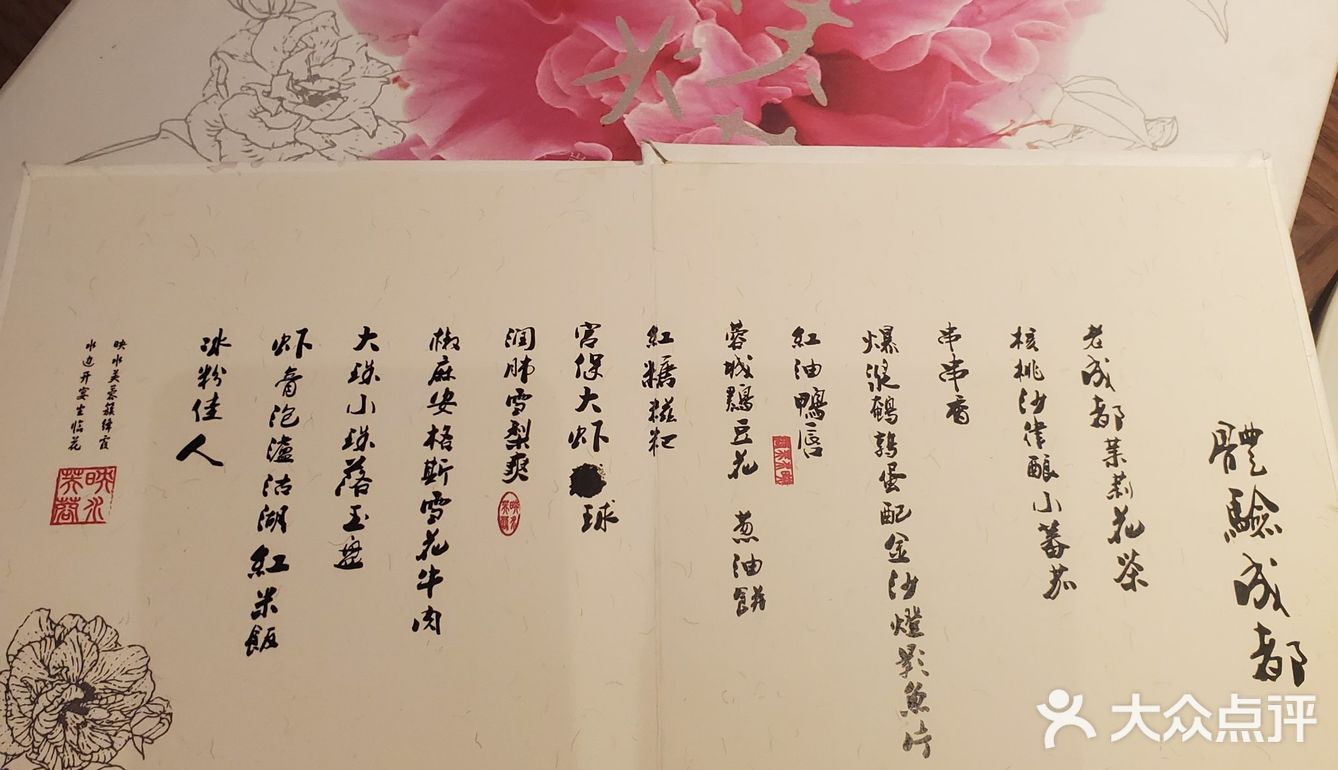 體驗成都
老成都茉莉花茶
核桃沙律酿小蕃茄
串串香
爆浆鹌鹑蛋配金沙燈影魚片
紅油鴨唇
蓉城鷄豆花 葱油餅
紅糖糍粑
宫保大虾球
润肺雪梨爽
椒麻安格斯雪花牛肉
大珠小珠落玉盘
虾膏泡瀘沽湖紅米飯
冰粉佳人
映水芙蓉簇绛霞
水边开宴坐临花
映水芙蓉
大众点评